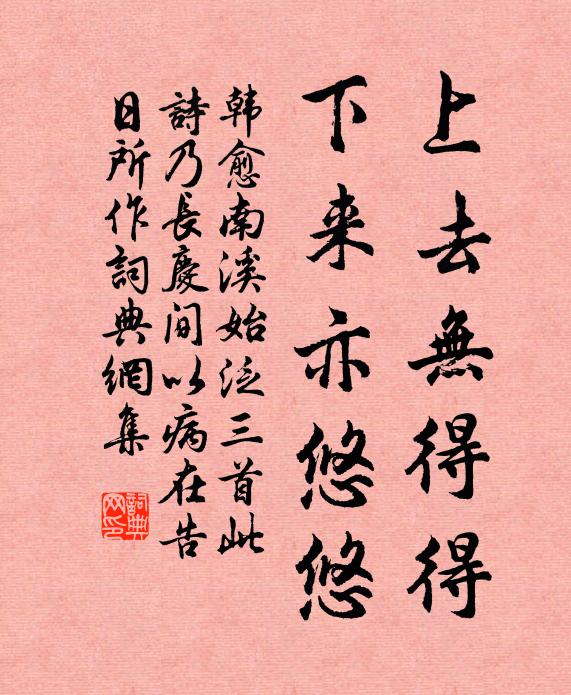 上去無得得
下来亦悠悠
韩愈南溪始泛三首此
詩乃長慶间以病在告
日所作詞典網集
詞典网印